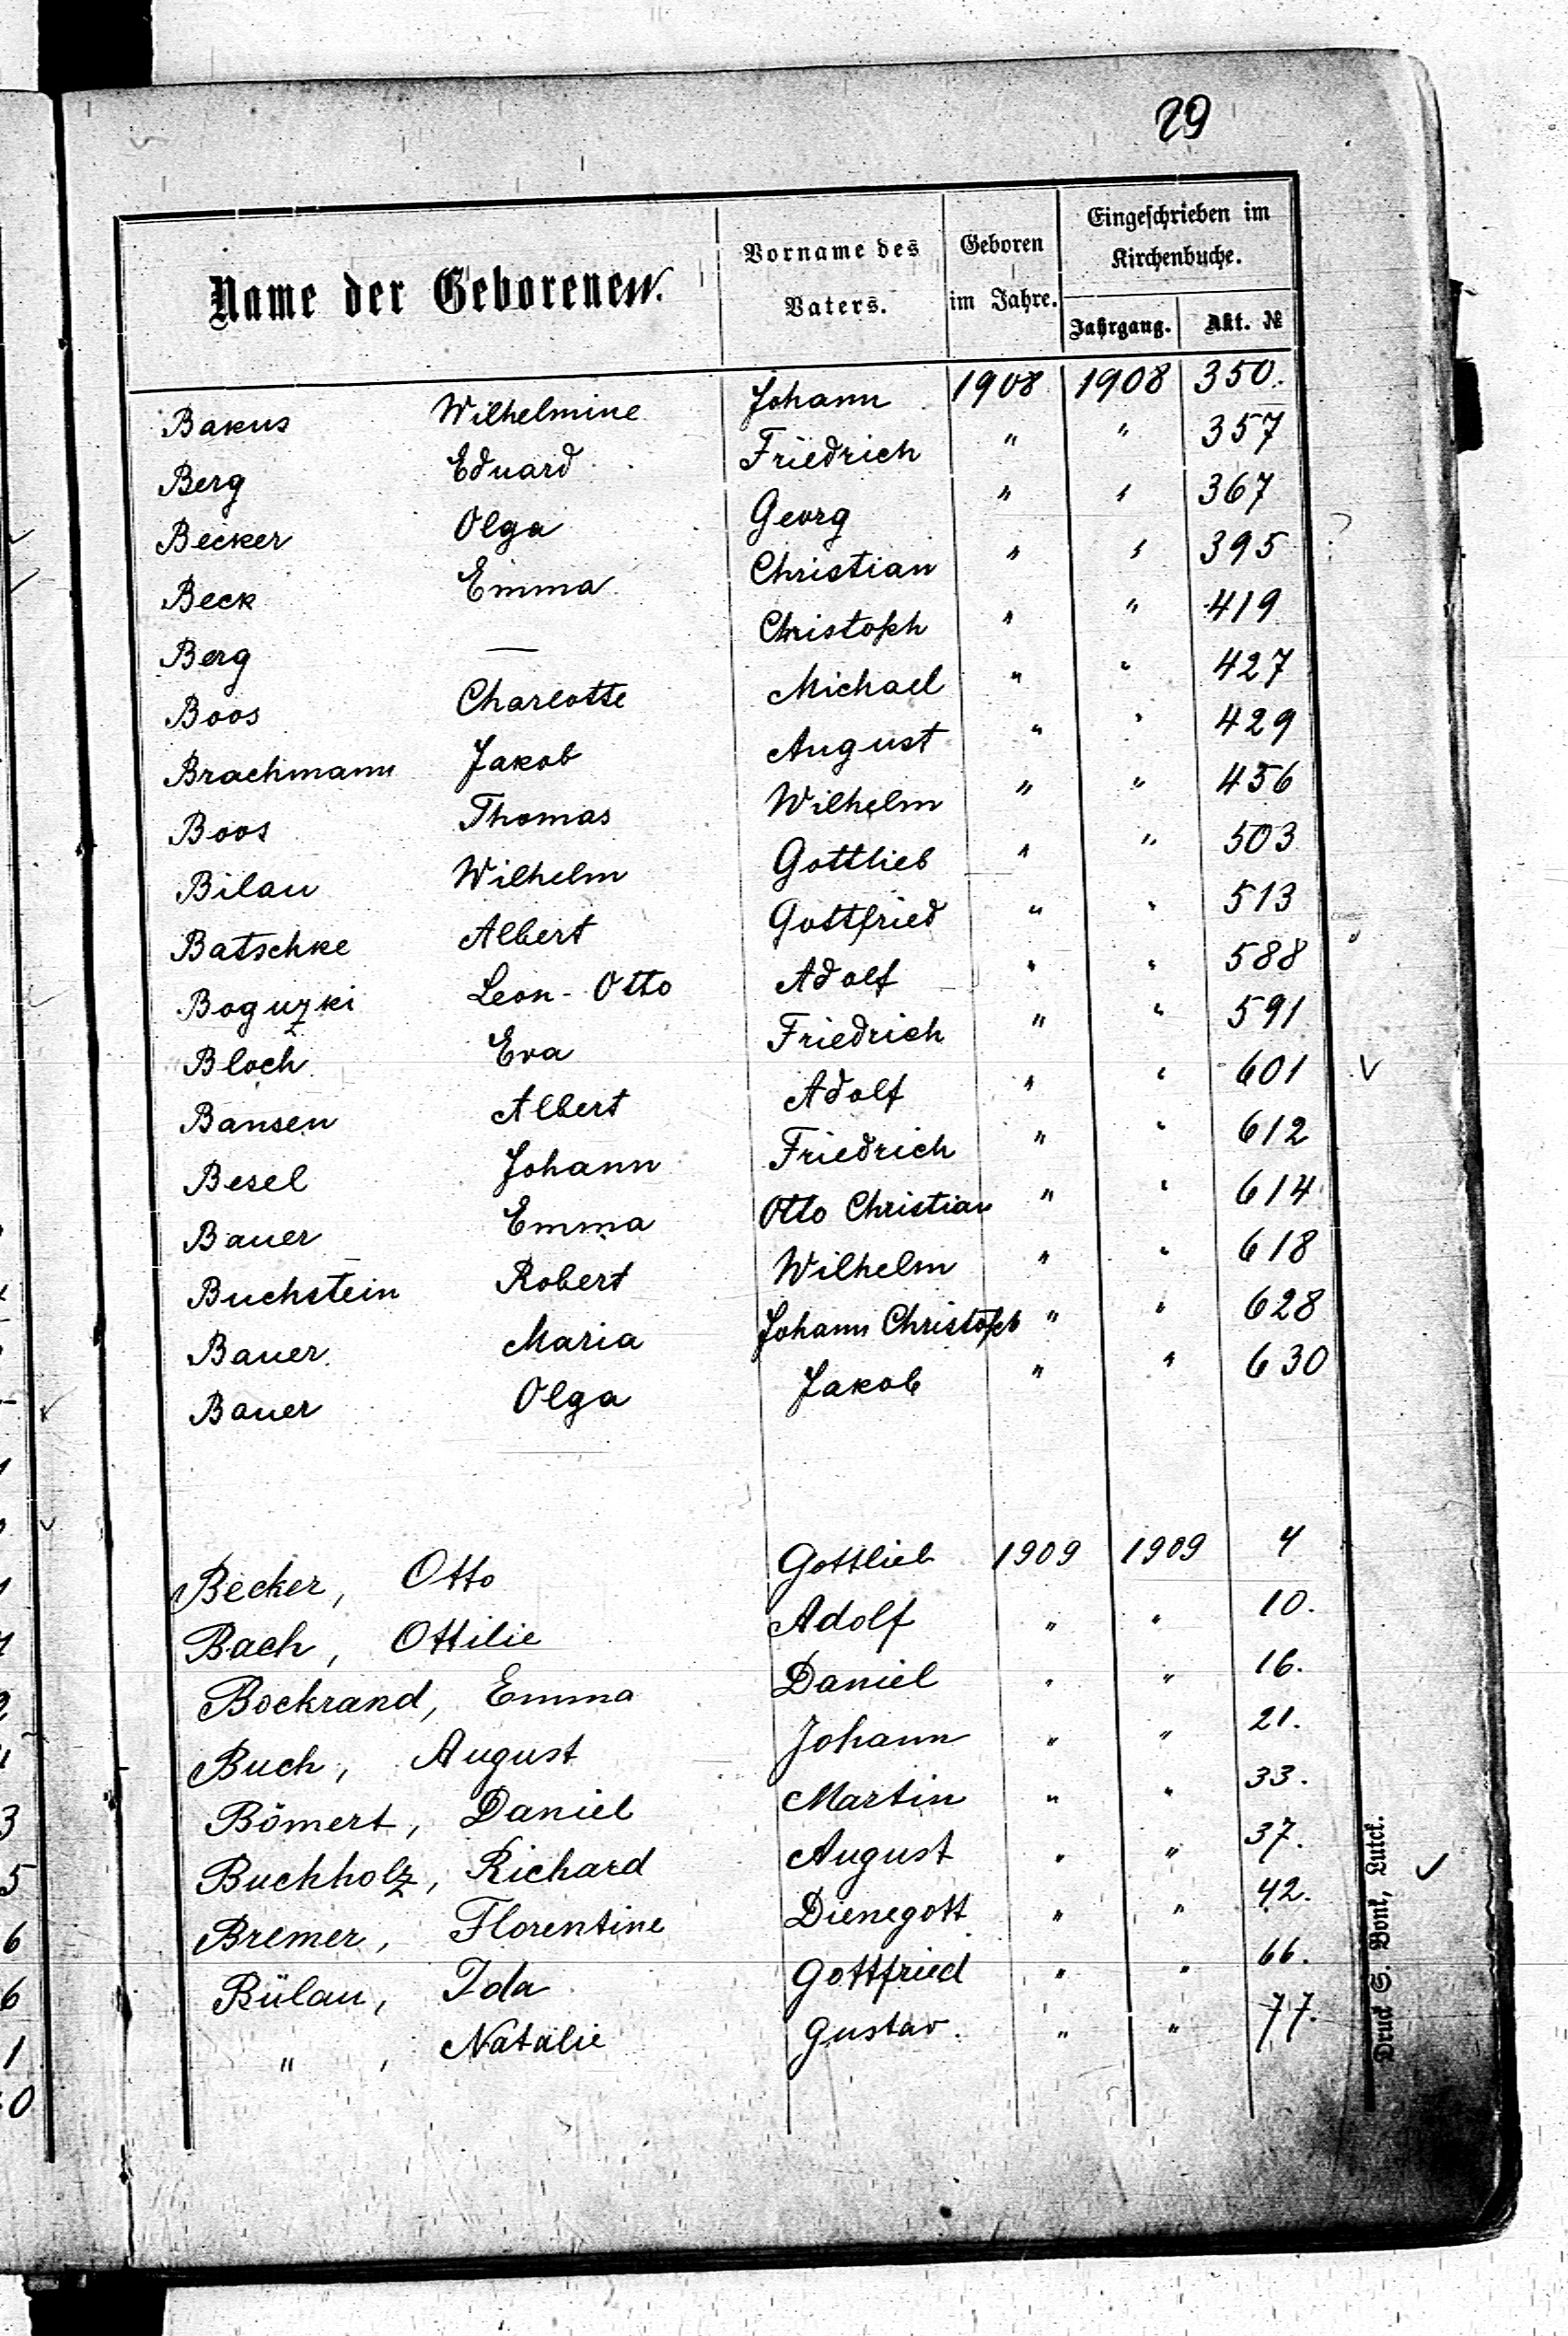 29
Name der Geborenen. Vorname des Vaters. Geboren im Jahre. Eingeschrieben im Kirchenbuche.
Jahrgang. Akt. №
Bakus Wilhelmine Johann 1908 1908 350.
Berg Eduard Friedrich " " 357
Becker Olga Georg " " 367
Beck Emma Christian " " 395
Berg — Christoph " " 419
Boos Charlotte Michael " " 427
Brachmann Jakob August " " 429
Boos Thomas Wilhelm " " 456
Bilau Wilhelm Gottlieb " " 503
Batschke Albert Gottfried " " 513
Boguzki Leon-Otto Adolf " " 588
Bloch Eva Friedrich " " 591
Bansen Albert Adolf " " 601
Besel Johann Friedrich " " 612
Bauer Emma Otto Christian " " 614
Buchstein Robert Wilhelm " " 618
Bauer Maria Johann Christoph " " 628
Bauer Olga Jakob " " 630
Becker, Otto Gottlieb 1909 1909 4
Bach, Ottilie Adolf " " 10.
Bockrand, Emma Daniel " " 16.
Buch, August Johann " " 21.
Bömert, Daniel Martin " " 33.
Buchholz, Richard August " " 37.
Bremer, Florentine Dienegott " " 42.
Bülau, Ida Gottfried " " 66.
" , Natalie Gustav. " " 77.
Druck S. Bonk, Lutck.